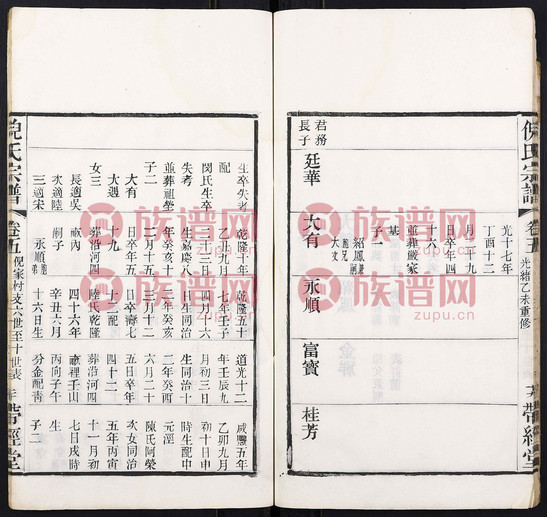 倪氏宗譜
卷五
光緒乙未重修
帶經堂
光十七年
丁酉十二
月二十九
日卒年四
十六
並葬嚴家
基
子二
紹鳳
大文
君務
長子
廷華
大有
永順
富寶
桂芳
生卒失考
配
閔氏生卒
失考
並葬祖塋
子二
大有
大遇
女三
長適吳
次適陸
三適宋
乾隆十年
乙丑九月
二十三日
生嘉慶八
年癸亥十
二月十五
日卒年五
十九
葬沿河四
畝內
嗣子
永順
乾隆五十
七年壬子
四月十六
日生同治
二年癸亥
三月十二
日卒壽七
十二配
陸氏乾隆
四十六年
辛丑六月
十六日生
道光十二
年壬辰九
月初三日
生同治十
二年癸酉
六月二十
五日卒年
四十二
葬沿河四
畝裡壬山
丙向子午
分金配喬
咸豐五年
乙卯九月
初十日申
時生配中
元涇
陳氏阿榮
次女同治
五年丙寅
十一月初
七日戌時
生
子二
倪氏宗譜
卷五
倪家村支六世至十世表
帶經堂
族谱网
族谱网
族谱网
族谱网